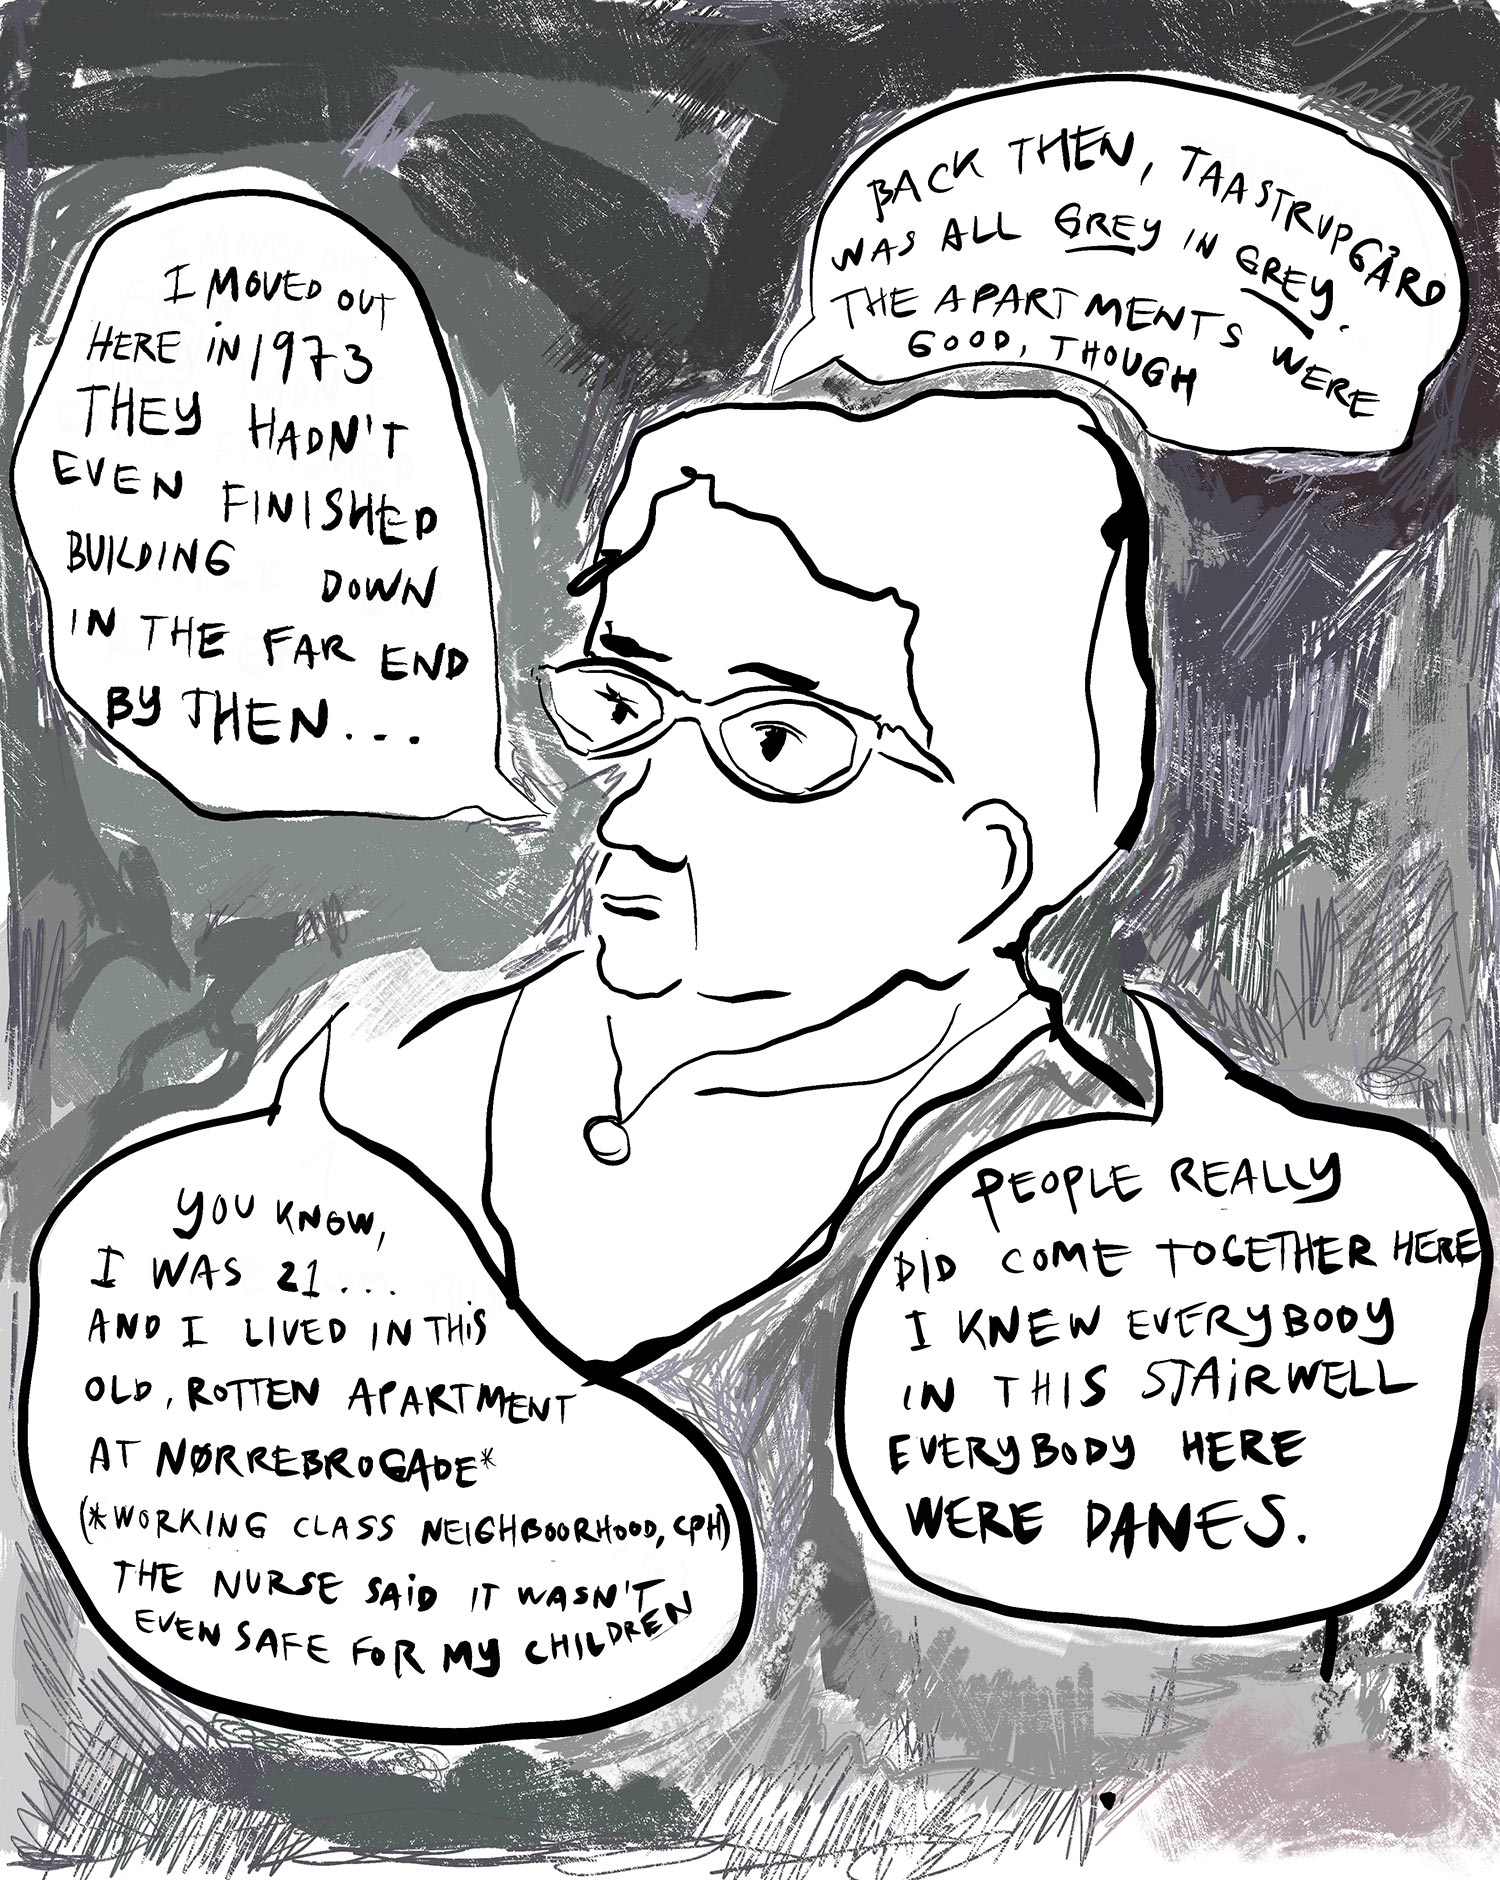 I MOVED OUT
HERE IN 1973
THEY HADN'T
EVEN FINISHED
BUILDING DOWN
IN THE FAR END
BY THEN...
BACK THEN, TAASTRUPGÅRD
WAS ALL GREY IN GREY.
THE APARTMENTS WERE
GOOD, THOUGH
YOU KNOW,
I WAS 21...
AND I LIVED IN THIS
OLD, ROTTEN APARTMENT
AT NØRREBROGADE*
(*WORKING CLASS NEIGHBOORHOOD, CPH)
THE NURSE SAID IT WASN'T
EVEN SAFE FOR MY CHILDREN
PEOPLE REALLY
DID COME TOGETHER HERE
I KNEW EVERYBODY
IN THIS STAIRWELL
EVERYBODY HERE
WERE DANES.